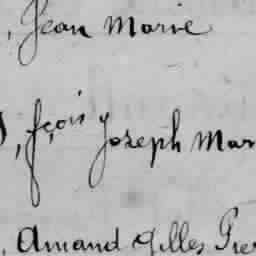 , Jean Marie
, fçois Joseph Mar
, Amand Gilles Pie